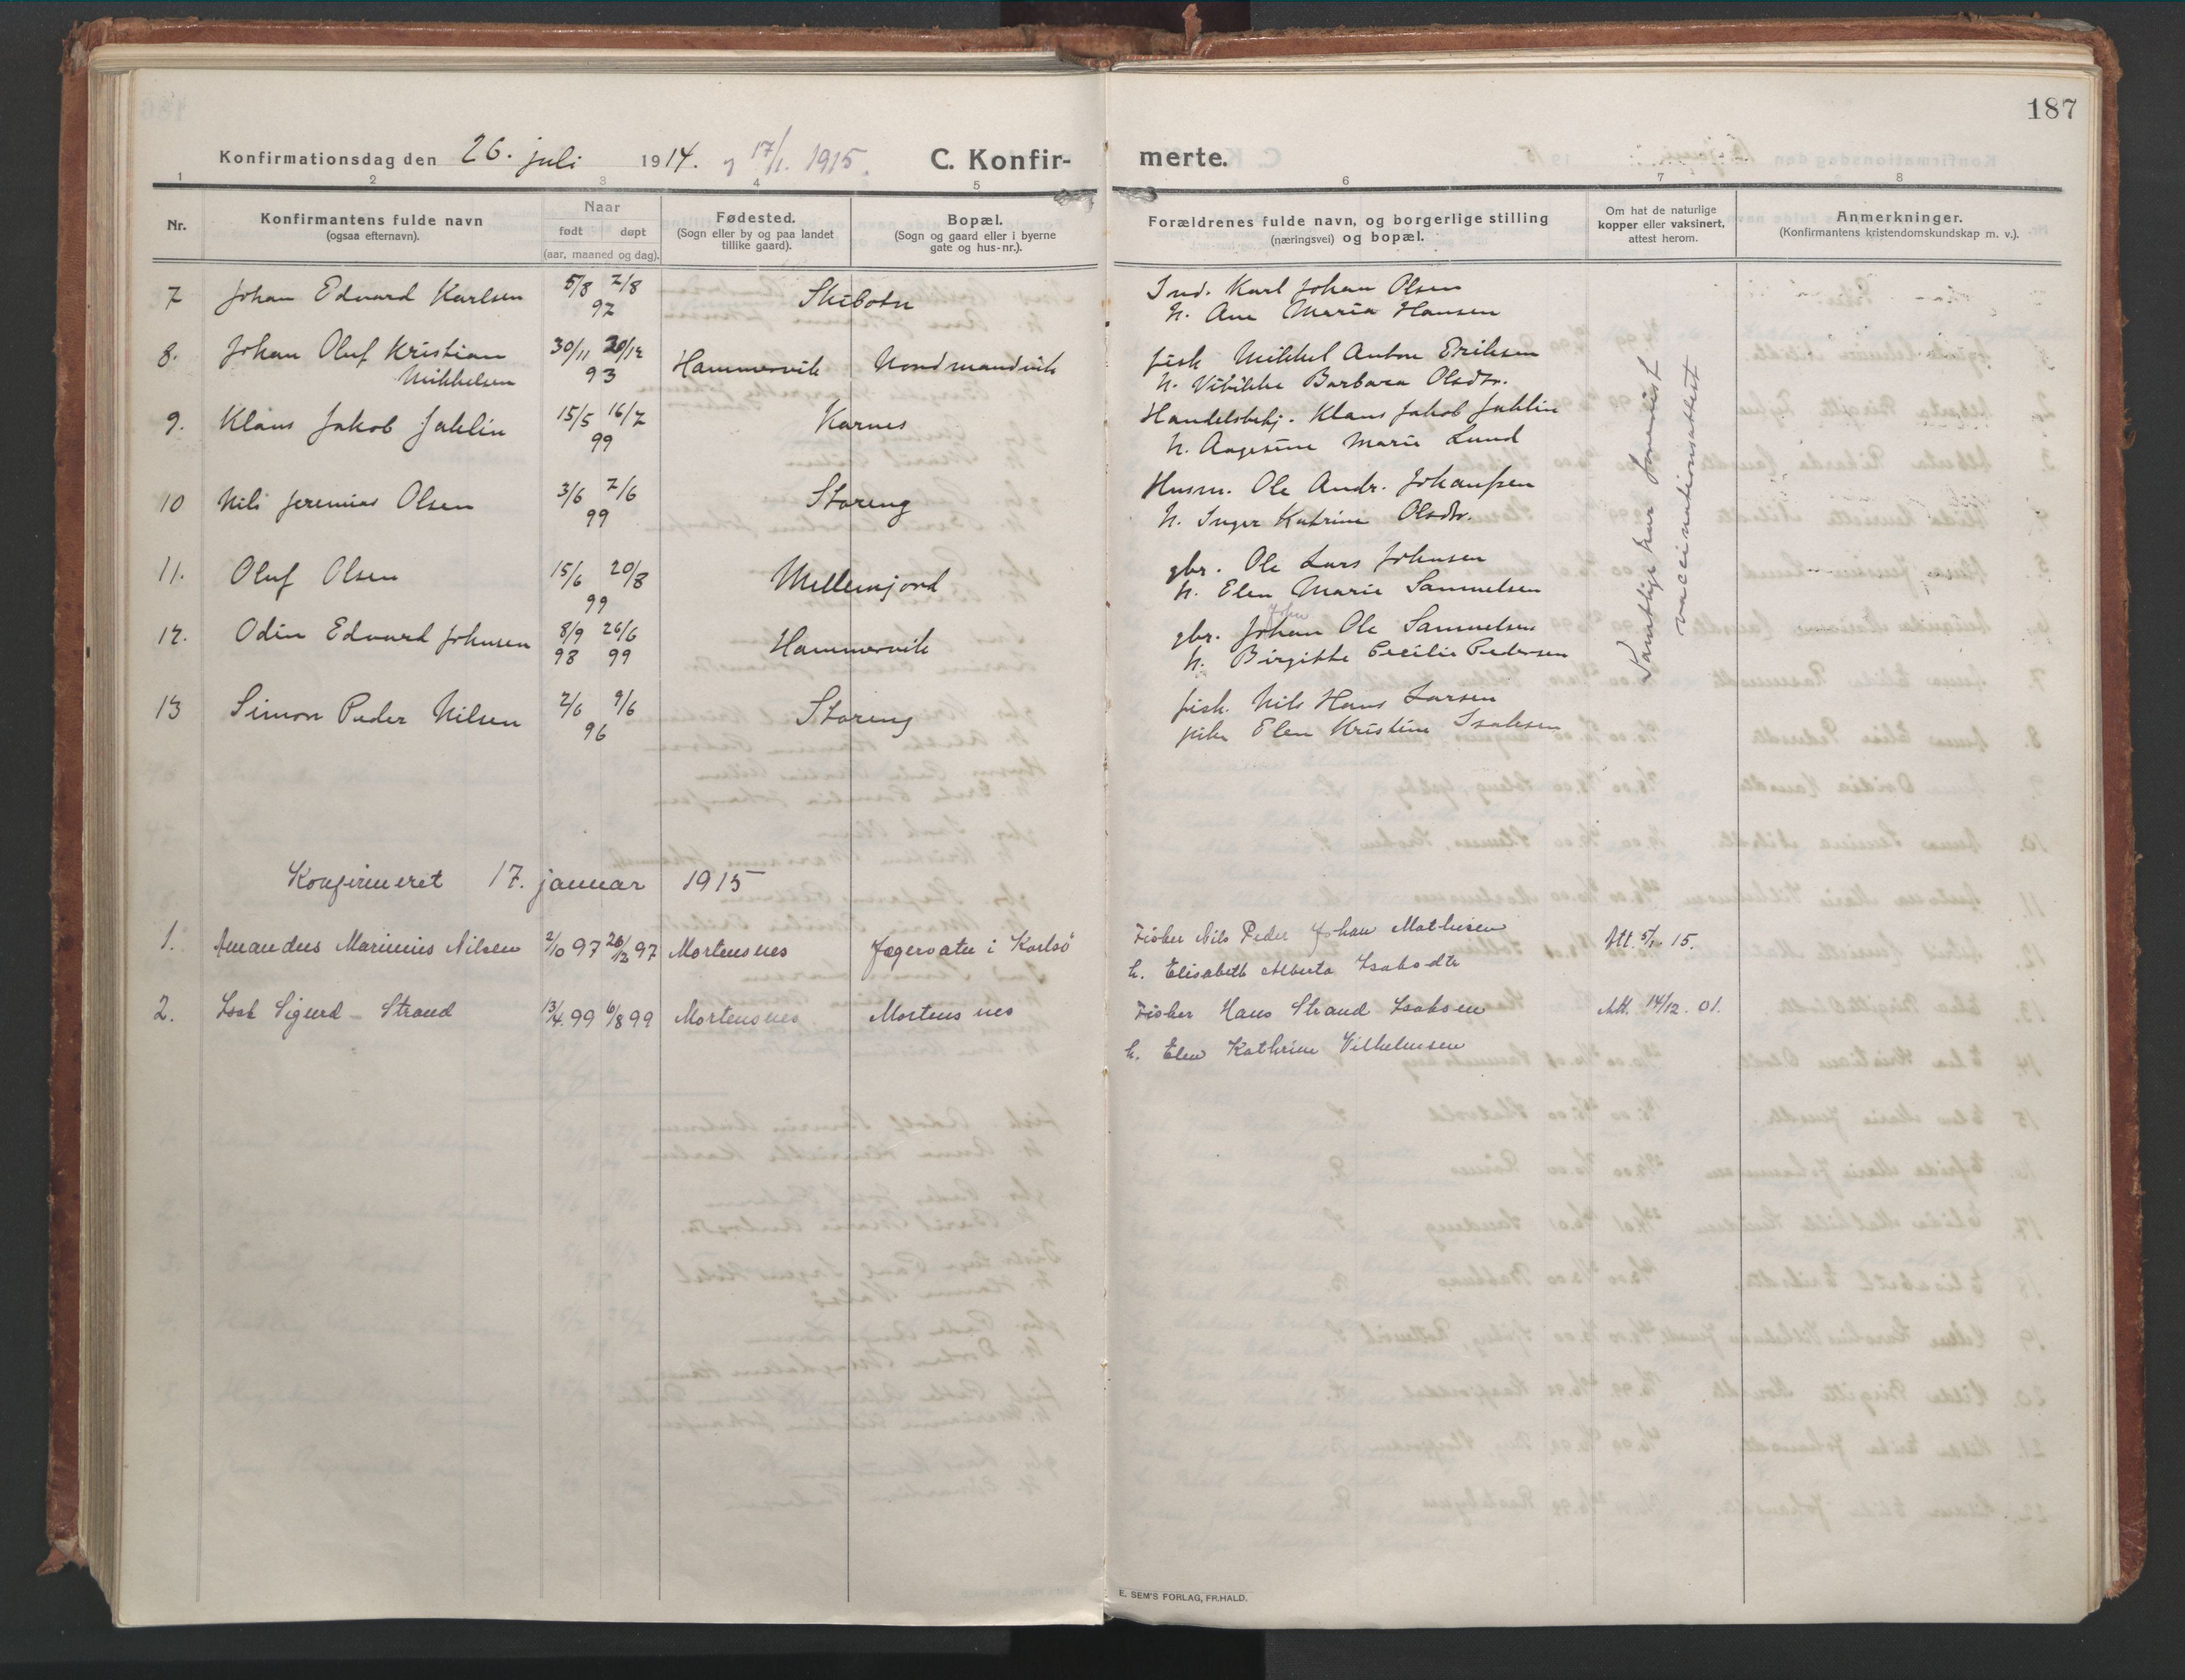 187
Konfirmationsdag den 26. juli 1914. og 17/1. 1915. C. Konfir- merte.
1 2 3 4 5 6 7 8
Nr.
Konfirmantens fulde navn
(ogsaa efternavn).
Naar
født døpt
(aar, maaned og dag).
Fødested.
(Sogn eller by og paa landet
tillike gaard).
Bopæl.
(Sogn og gaard eller i byerne
gate og hus-nr.).
Forældrenes fulde navn, og borgerlige stilling
(næringsvei) og bopæl.
Om hat de naturlige
kopper eller vaksinert,
attest herom.
Anmerkninger.
(Konfirmantens kristendomskundskap m. v.).
7 Johan Edvard Karlsen 5/8 7/8 Skibotn Ind. Karl Johan Olsen
97 h. Ane Maria Hansen
8. Johan Oluf Kristian 30/11 20/12 Hammervik Nordmandvik fisk Mikkel Anton Eriksen
Mikkelsen 93 h. Vibikke Barbara Olsdtr.
9. Klaus Jakob Jaklin 15/5 16/7 Karnes Handelsbetj. Klaus Jakob Jaklin
99 h. Aagesine Marie Lund
10 Nils Jeremias Olsen 3/6 7/6 Storeng Husm. Ole Andr. Johanssen
99 h. Inger Katrine Olsdtr.
11. Oluf Olsen 15/6 20/8 Mellemjord gbr. Ole Lars Johnsen
99 h. Elen Marie Samuelsen
John
12. Odin Edvard Johnsen 8/9 26/6 Hammervik gbr. Johan Ole Samuelsen
98 99 h. Birgitte Cecilie Pedersen
13 Simon Peder Nilsen 2/6 9/6 Storeng fisk. Nils Hans Larsen
96 pike Elen Kristine Isaksen
Samtlige har forevist
vaccinationsattest
Konfirmeret 17. januar 1915
1. Amandus Marinius Nilsen 2/10 97 26/12 97 Mortensnes Fagervatn i Karlsö Fisker Nils Peder Johan Mathisen Att. 5/1. 15.
h. Elisabeth Alberta Isaksdtr
2. Isak Sigurd - Strand 13/4. 99 6/8 99 Mortensnes Mortensnes Fisker Hans Strand Isaksen Att. 14/12. 01.
h. Elen Kathrine Vilhelmsen
E. SEM'S FORLAG, FR.HALD.